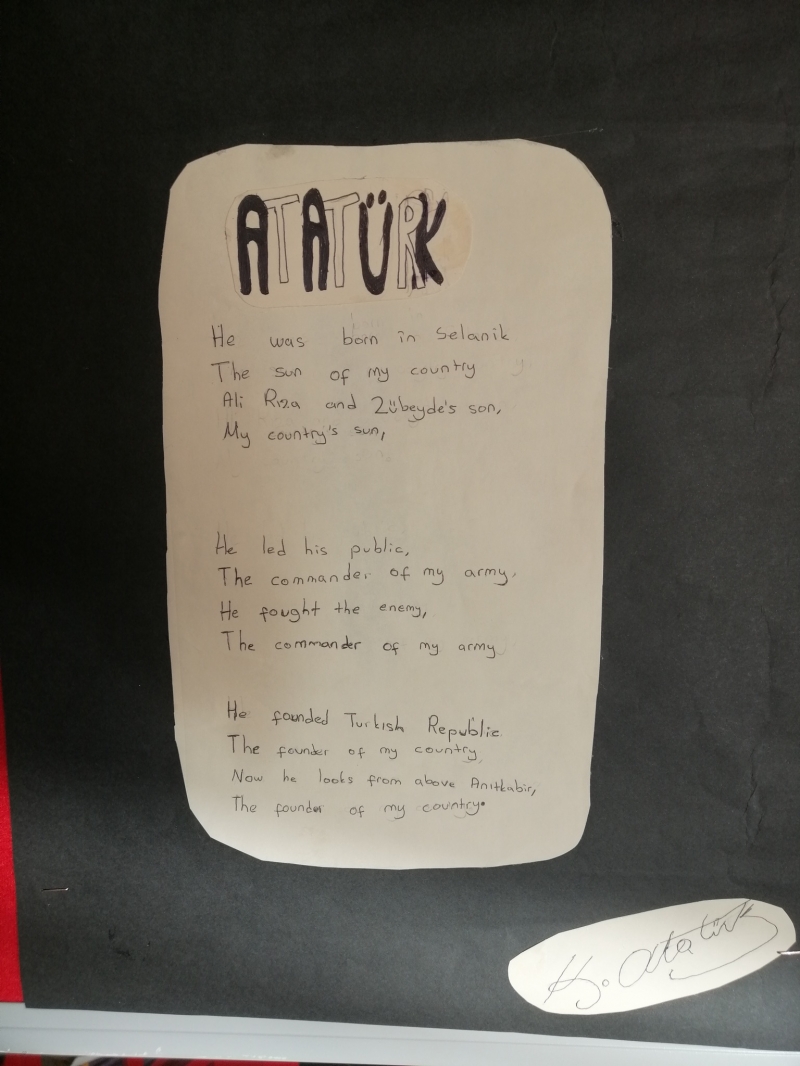 ATATÜRK
He was born in Selanik
The sun of my country
Ali Rıza and Zübeyde's son,
My country's sun,
He led his public,
The commander of my army,
He fought the enemy,
The commander of my army
He founded Turkish Republic.
The founder of my country,
Now he looks from above Anıtkabir,
The founder of my country.
K. Atatürk